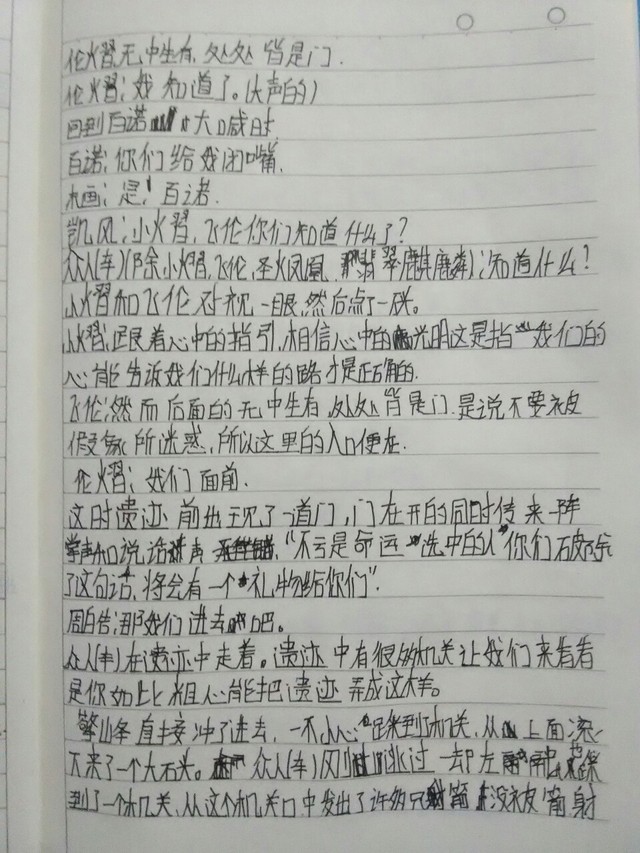 伦熠:无中生有,处处皆是门.
伦熠:我知道了。(大声的)
回到百诺 大口喊时.
百诺:你们给我闭嘴.
木画:是!百诺.
凯风:小熠,飞伦你们知道什么了?
众人(车)(除小熠,飞伦,圣火凤凰,翡翠麒麟):知道什么?
小熠和飞伦对视一眼,然后点了一头。
小熠:跟着心中的指引,相信心中的光明这是指 我们的
心能告诉我们什么样的路才是正确的.
飞伦:然而后面的无中生有,处处皆是门.是说不要被
假象所迷惑,所以这里的入口便在.
伦熠:我们面前.
这时遗迹前出现了一道门,门在开的同时传来一阵
掌声和说话声 "不亏是命运选中的人"你们破解
了这句话,将会有一个礼物给你们".
周白告:那我们进去吧。
众人(车)在遗迹中走着。遗迹中有很多机关让我们来看看
是你如此粗心能把遗迹弄成这样。
直接冲了进去,一不小心踩到了机关,从上面滚
下来了一个大石头。众人(车)刚跳过一劫左 也踩
到了一个机关,从这个机关口中发出了许多只箭 没被箭射